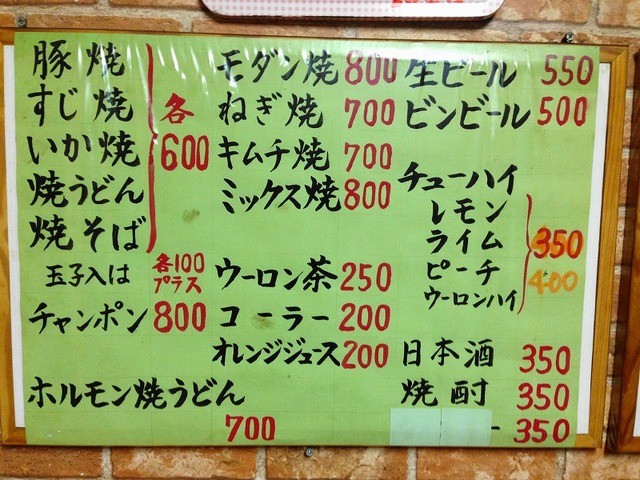 豚焼
すじ焼
いか焼
焼うどん
焼そば
各
600
玉子入は 各100
プラス
チャンポン 800
ホルモン焼うどん
700
モダン焼 800
ねぎ焼 700
キムチ焼 700
ミックス焼 800
ウーロン茶 250
コーラー 200
オレンジジュース 200
生ビール 550
ビンビール 500
チューハイ
レモン
ライム
ピーチ
ウーロンハイ
350
400
日本酒 350
焼酎 350
ー 350